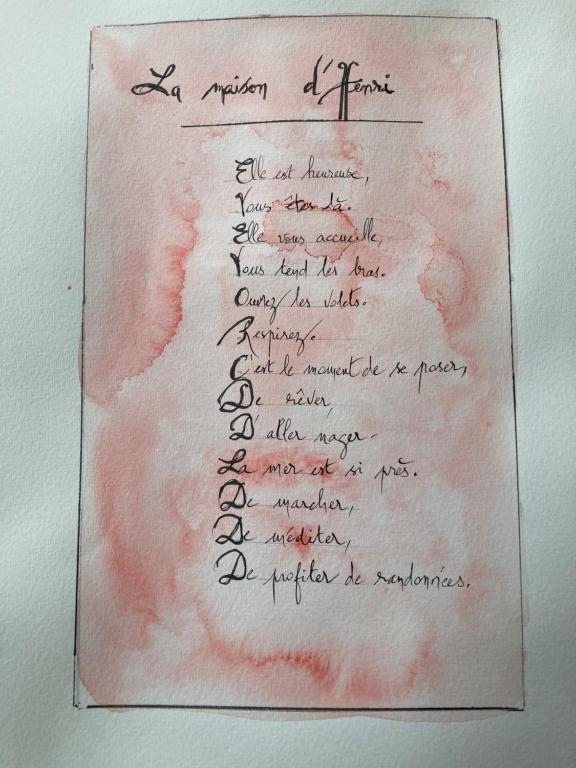 La maison d'Henri
Elle est heureuse,
Vous êtes là.
Elle vous accueille,
Vous tend les bras.
Ouvrez les volets.
Respirez.
C'est le moment de se poser,
De rêver,
D'aller nager.
La mer est si près.
De marcher,
De méditer,
De profiter de randonnées.